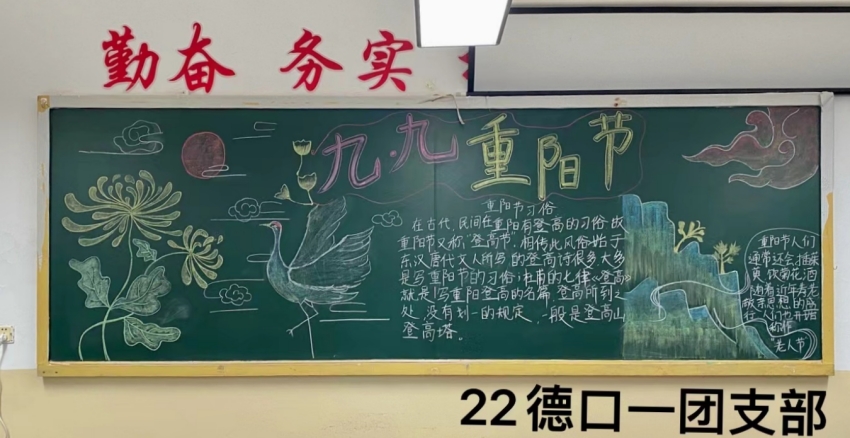 勤奋 务实
九·九重阳节
重阳节习俗
在古代,民间在重阳有登高的习俗,故
重阳节又称"登高节"。相传此风俗始于
东汉。唐代文人所写的登高诗很多大多
是写重阳节的习俗;杜甫的七律《登高》
就是写重阳登高的名篇。登高所到之
处,没有划一的规定,一般是登高山
登高塔。
重阳节人们
通常还会插茱
萸、饮菊花酒
随着近年寿老
敬亲思想的盛
行,人们也开始
称作
"老人节"
22德口一团支部